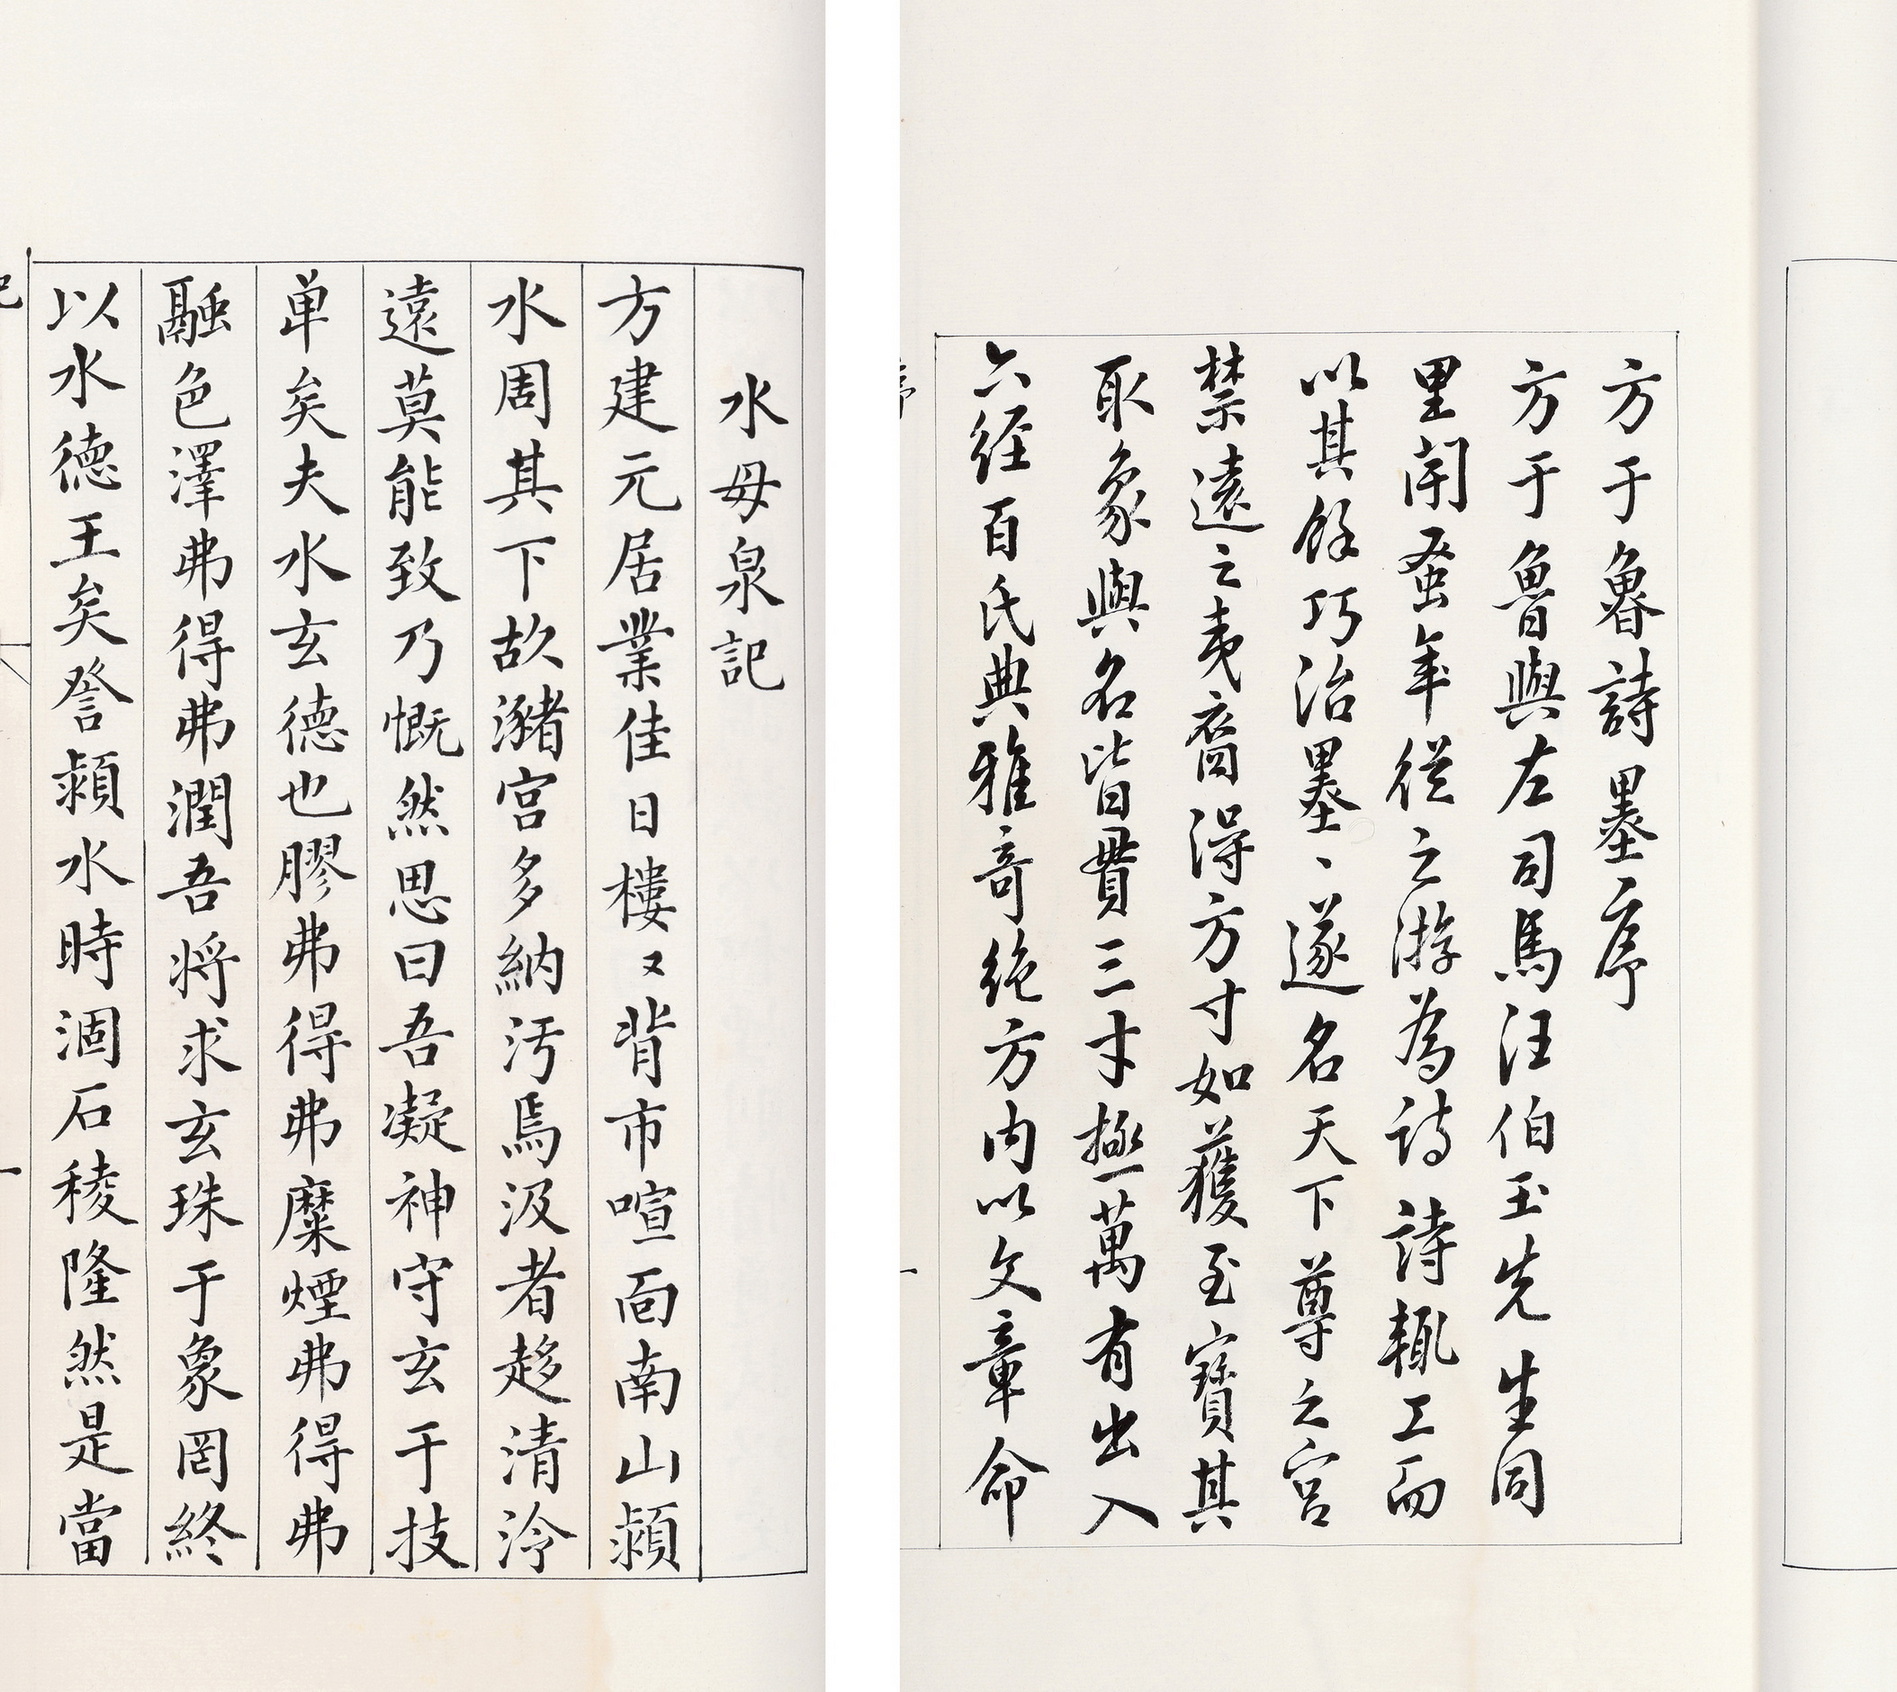 方于魯詩墨序
方于魯與左司馬汪伯玉先生同
里閈蚤年從之游為詩詩輒工而
以其餘巧治墨、遂名天下尊之宮
禁遠之夷裔得方寸如獲至寶其
取象與名皆貫三才極萬有出入
六經百氏典雅奇絕方內以文章命
水母泉記
方建元居業佳日樓〻背市喧面南山潁
水周其下故瀦宮多納污焉汲者趍清泠
遠莫能致乃慨然思曰吾凝神守玄于技
单矣夫水玄德也膠弗得弗糜煙弗得弗
融色澤弗得弗潤吾将求玄珠于象罔終
以水德王矣詧潁水時涸石稜隆然是當